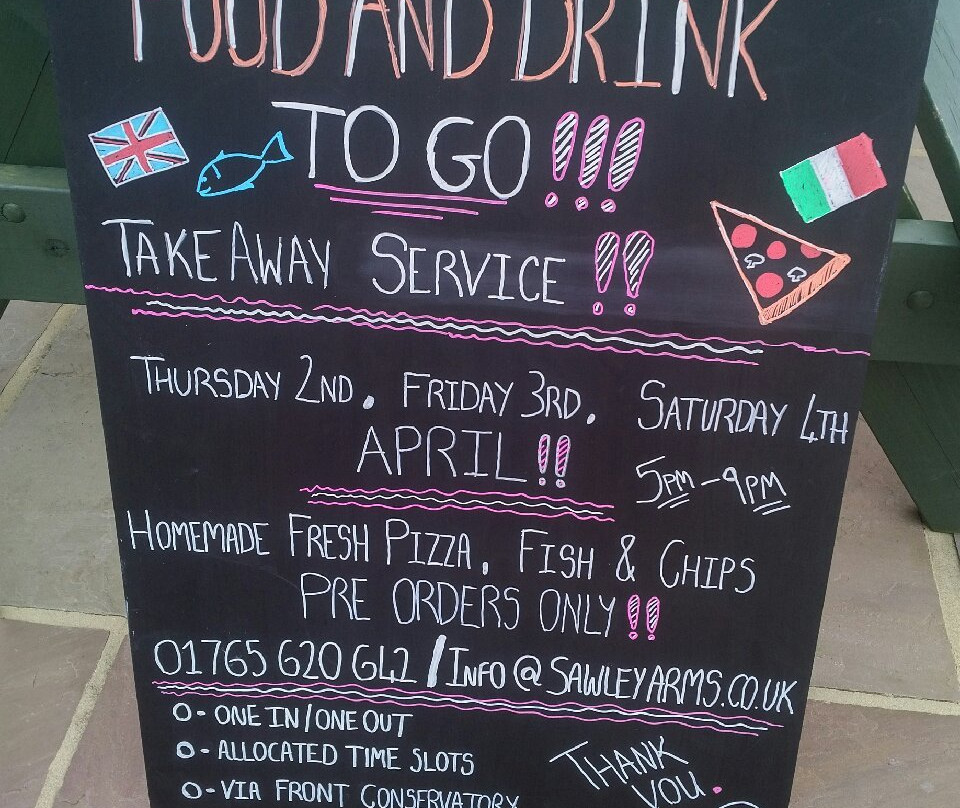 FOOD AND DRINK
TO GO!!!
TAKE AWAY SERVICE!!
THURSDAY 2ND. FRIDAY 3RD. SATURDAY 4TH
APRIL!!
5PM - 9PM
HOMEMADE FRESH PIZZA. FISH & CHIPS
PRE ORDERS ONLY!!
01765 620 642 / INFO@SAWLEYARMS.CO.UK
O - ONE IN / ONE OUT
O - ALLOCATED TIME SLOTS
O - VIA FRONT CONSERVATORY
THANK
YOU.